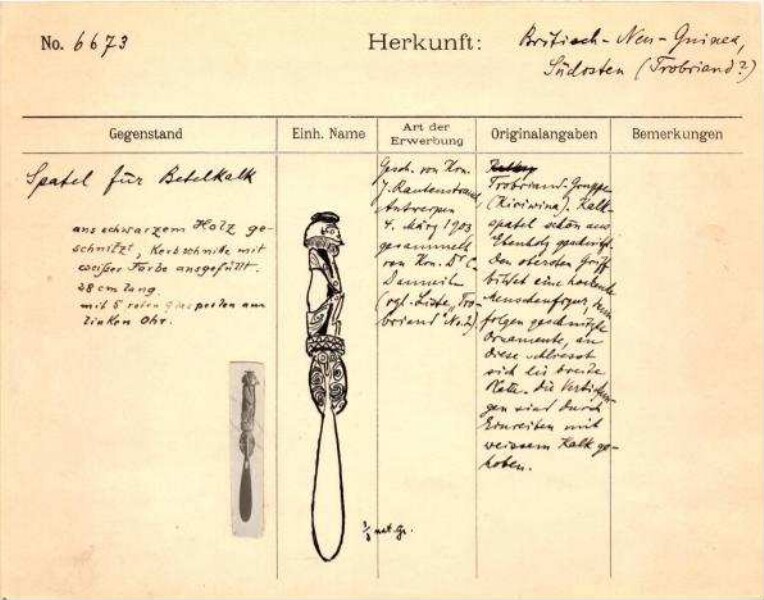 No. 6673
Herkunft: Britisch-Neu-Guinea,
Südosten (Trobriand?)
Gegenstand
Einh. Name
Art der
Erwerbung
Originalangaben
Bemerkungen
Spatel für Betelkalk
aus schwarzem Holz ge-
schnitzt, Kerbschnitte mit
weißer Farbe ausgefüllt.
28 cm lang.
mit 5 roten Glasperlen am
linken Ohr.
Gesch. von Hrn.
J. Rautenstrauch,
Antwerpen
4. März 1903
gesammelt
von Hrn. Dr
(vgl. Liste „Tro-
briand" No. 2).
Trobriand-Gruppe
(Kiriwina). Kalk-
spatel schön aus
Ebenholz geschnitzt.
Den obersten Griff
bildet eine hockende
Menschenfigur, dann
folgen geschnitzte
Ornamente, an
diese schliesst
sich die breite
Die Vertiefun-
gen sind durch
Einreiben mit
weissem Kalk ge-
hoben.
1/3 nat. Gr.